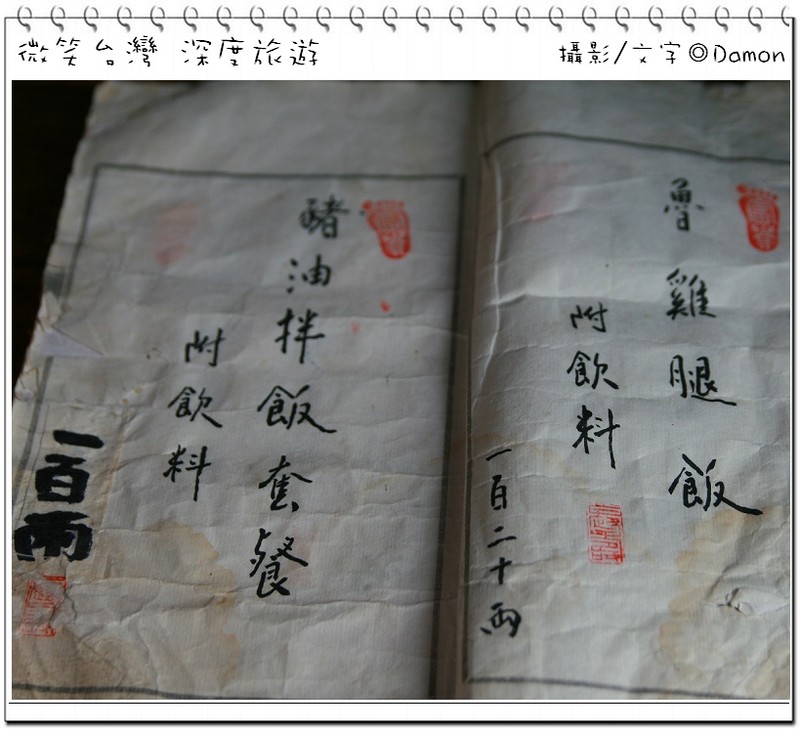 微笑台灣 深度旅遊
攝影/文字 ©Damon
魯雞腿飯
附飲料
一百二十兩
豬油拌飯套餐
附飲料
一百兩